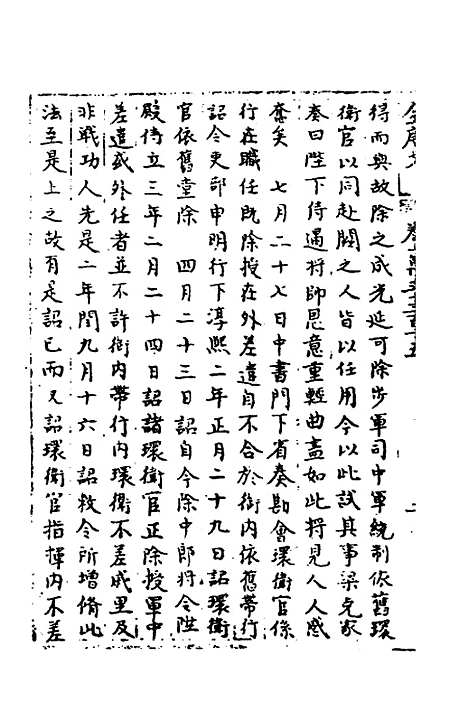 得而與故除之成光延可除步軍司中軍統制依舊環
衛官以同赴闕之人皆以任用今以此試其事梁克家
奏曰陛下待遇將帥恩意重輕曲盡如此將見人人感
奮矣　七月二十七日中書門下省奏勘會環衛官係
行在職任既除授在外差遣自不合於銜內依舊帶行
詔令吏部申明行下淳熙二年正月二十九日詔環衛
官依舊堂除　四月二十三日詔自今除中郎將令陛
殿侍立三年二月二十四日詔諸環衛官正除授軍中
差遣或外任者並不許銜內帶行內環衛不差戚里及
非戰功人先是二年閏九月十六日詔敕令所增脩此
法至是上之故有是詔已而又詔環衛官指揮內不差